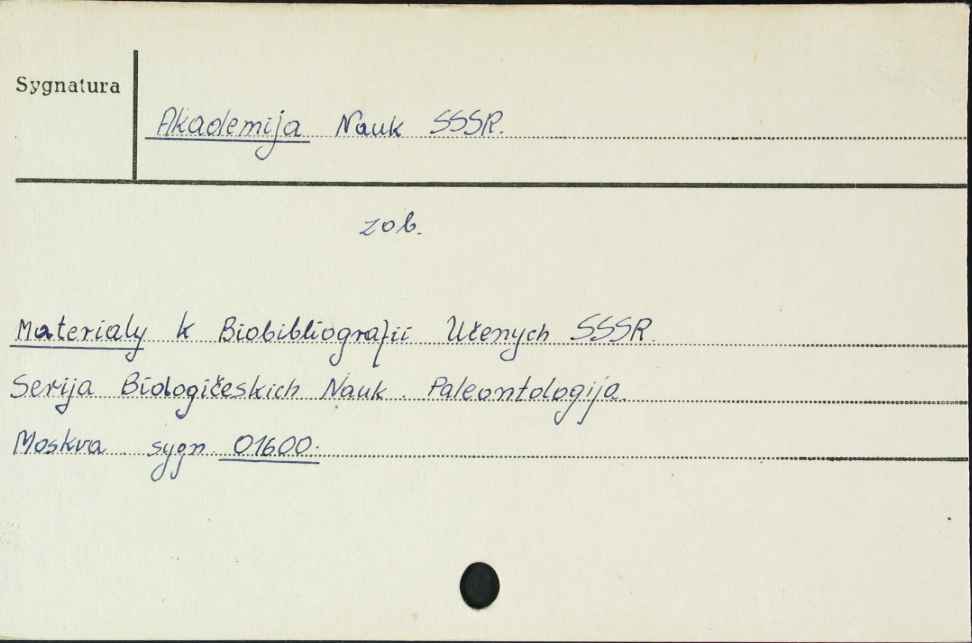 Sygnatura
Akademija Nauk SSSR.
zob.
Materialy k Biobibliografii Učenych SSSR.
Serija Biologičeskich Nauk. Paleontologija.
Moskva sygn 01600.